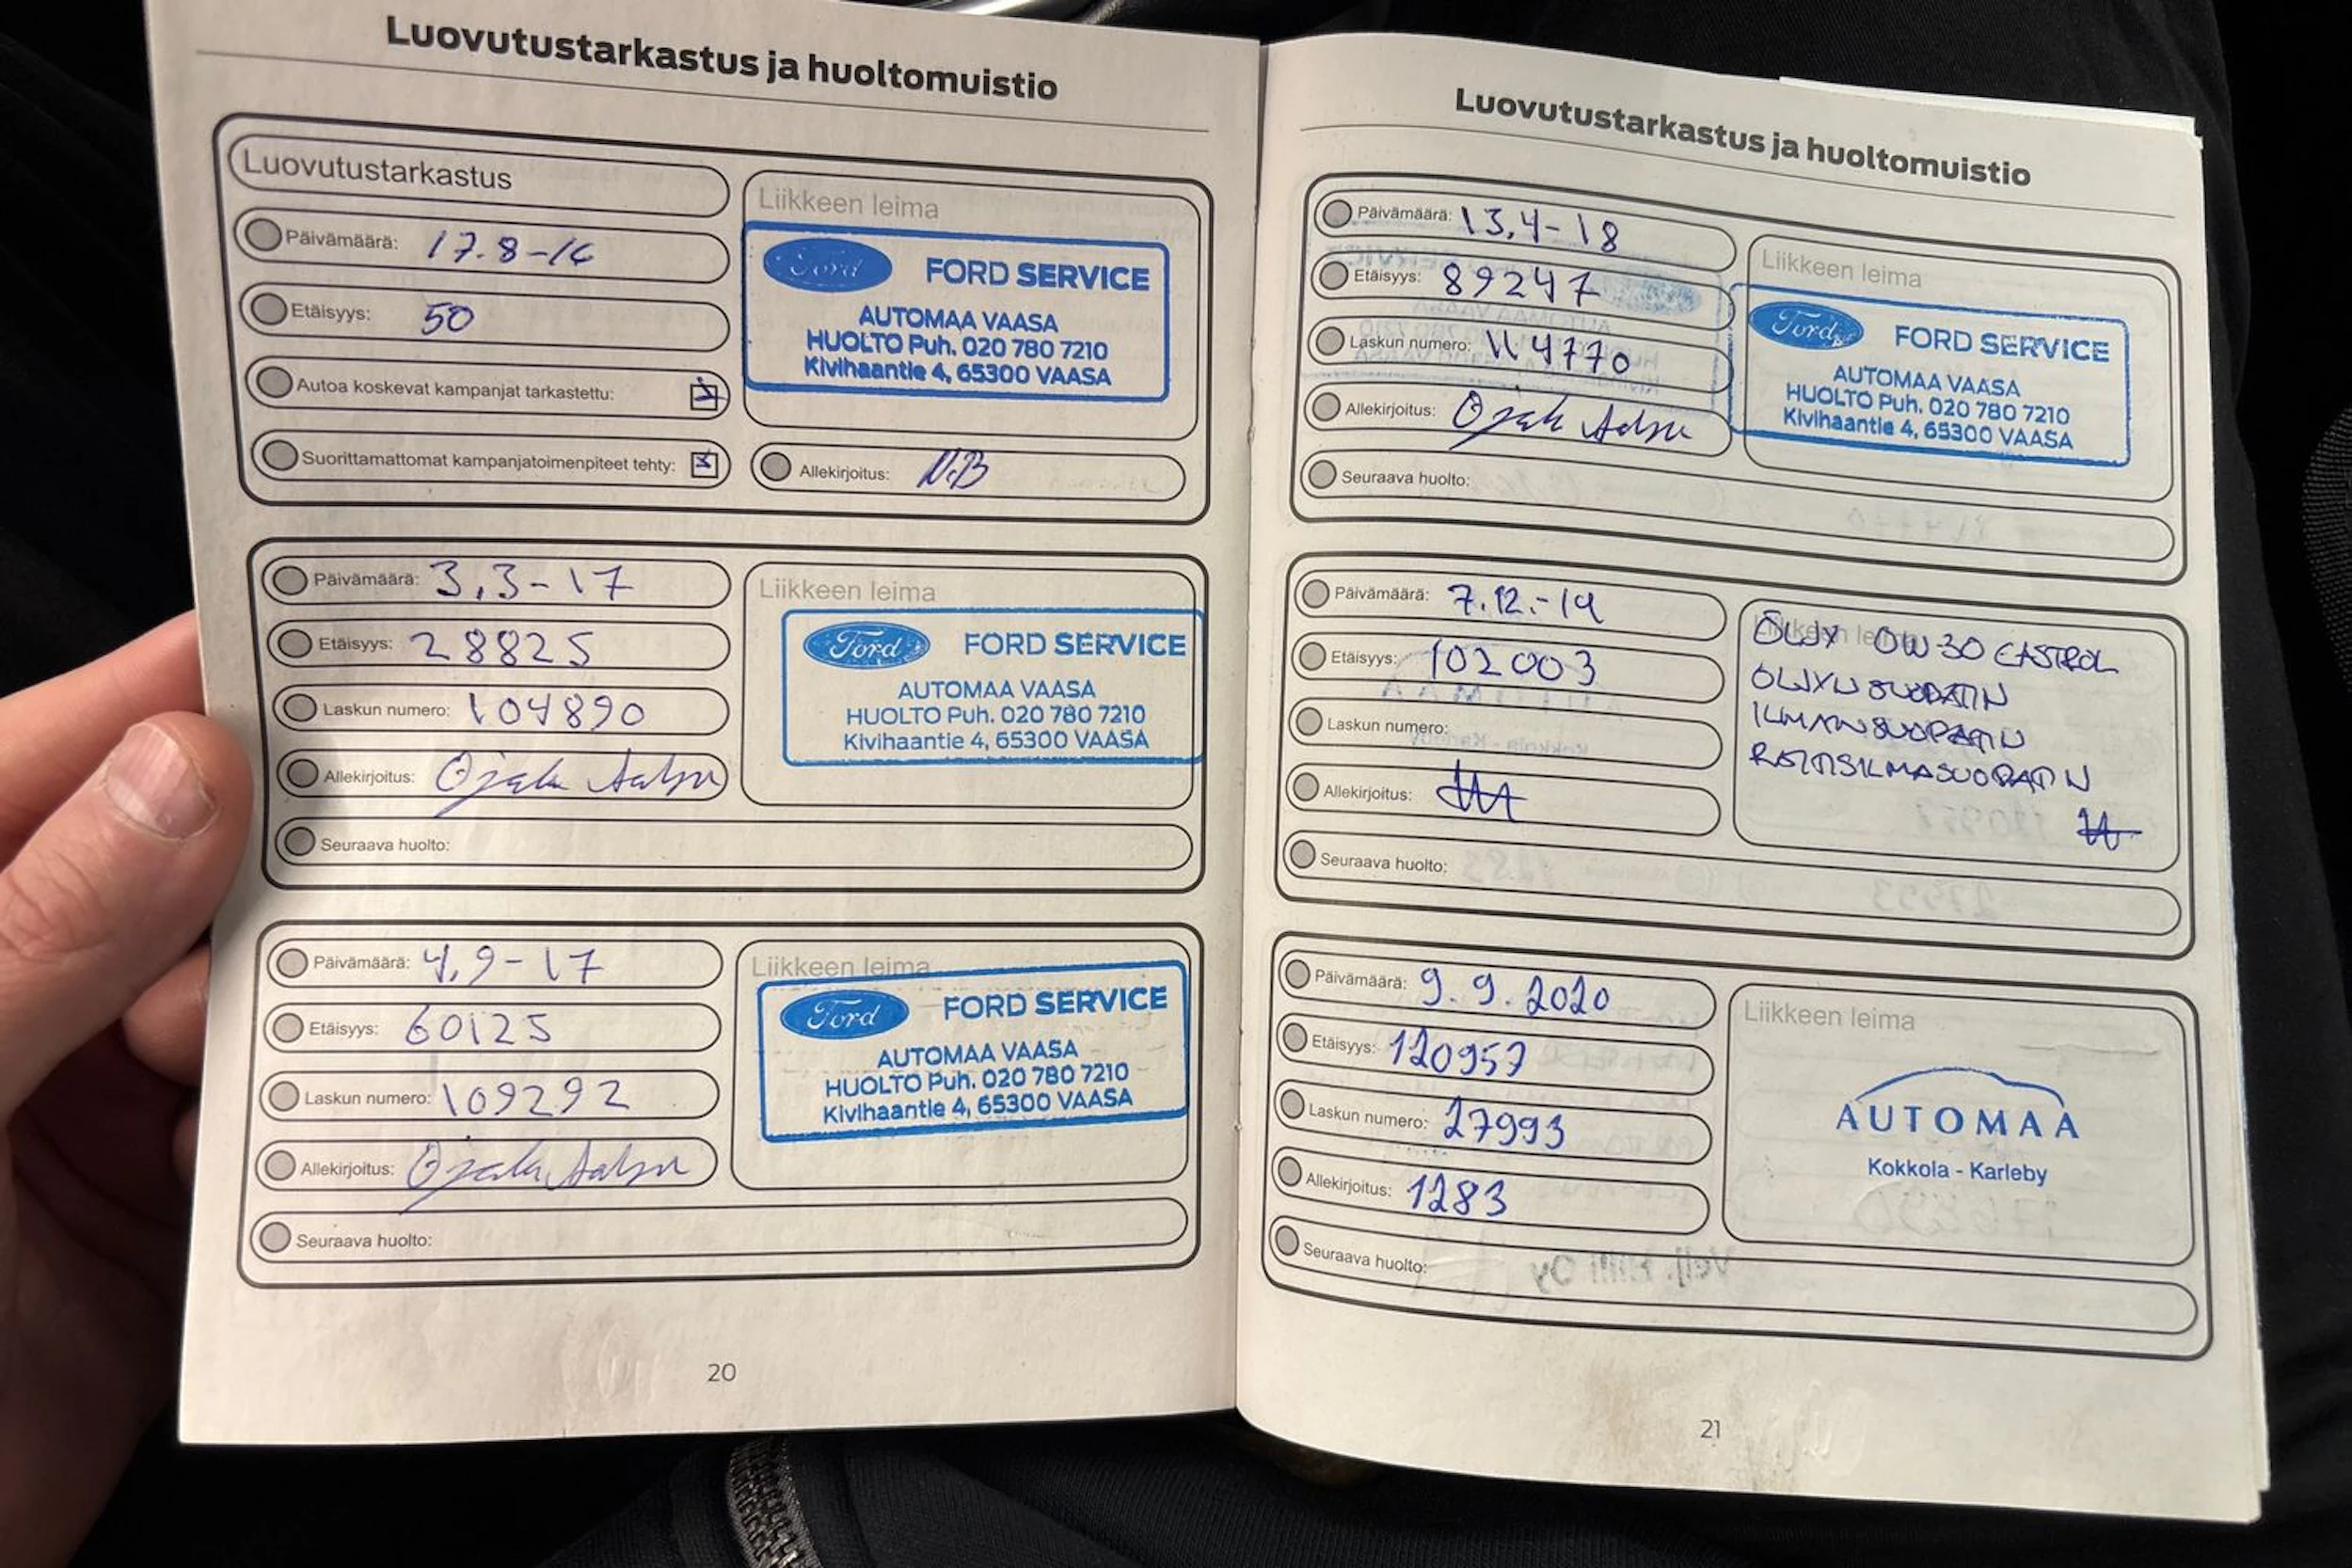 Luovutustarkastus ja huoltomuistio
Luovutustarkastus
Päivämäärä: 17.8-16
Etäisyys: 50
Autoa koskevat kampanjat tarkastettu:
Suorittamattomat kampanjatoimenpiteet tehty:
Liikkeen leima
Ford FORD SERVICE
AUTOMAA VAASA
HUOLTO Puh. 020 780 7210
Kivihaantie 4, 65300 VAASA
Allekirjoitus: N.B
Päivämäärä: 3.3-17
Etäisyys: 28825
Laskun numero: 104890
Allekirjoitus:
Seuraava huolto:
Liikkeen leima
Ford FORD SERVICE
AUTOMAA VAASA
HUOLTO Puh. 020 780 7210
Kivihaantie 4, 65300 VAASA
Päivämäärä: 4.9-17
Etäisyys: 60125
Laskun numero: 109292
Allekirjoitus:
Seuraava huolto:
Liikkeen leima
Ford FORD SERVICE
AUTOMAA VAASA
HUOLTO Puh. 020 780 7210
Kivihaantie 4, 65300 VAASA
20
Luovutustarkastus ja huoltomuistio
Päivämäärä: 13.4-18
Etäisyys: 89247
Laskun numero: 114770
Allekirjoitus:
Seuraava huolto:
Liikkeen leima
Ford FORD SERVICE
AUTOMAA VAASA
HUOLTO Puh. 020 780 7210
Kivihaantie 4, 65300 VAASA
Päivämäärä: 7.12.-19
Etäisyys: 102003
Laskun numero:
Allekirjoitus:
Seuraava huolto:
Liikkeen leima
ÖLJY 0W-30 CASTROL
ÖLJYNSUODATIN
ILMANSUODATIN
RAITISILMASUODATIN
Päivämäärä: 9.9.2020
Etäisyys: 120957
Laskun numero: 27993
Allekirjoitus: 1283
Seuraava huolto:
Liikkeen leima
AUTOMAA
Kokkola - Karleby
21